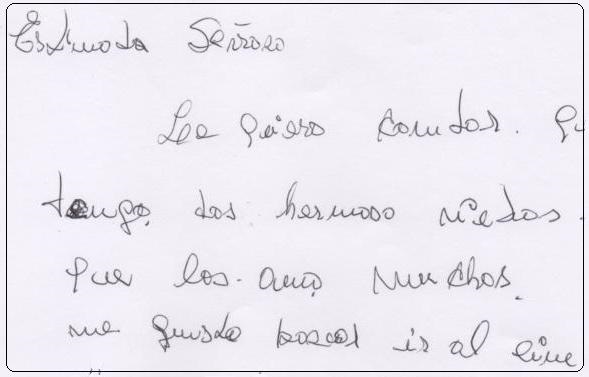 Estimada Señora
Le quiero contar. qu
tengo dos hermoso nietos.
que los amo muchos.
me gusta pasear ir al cine